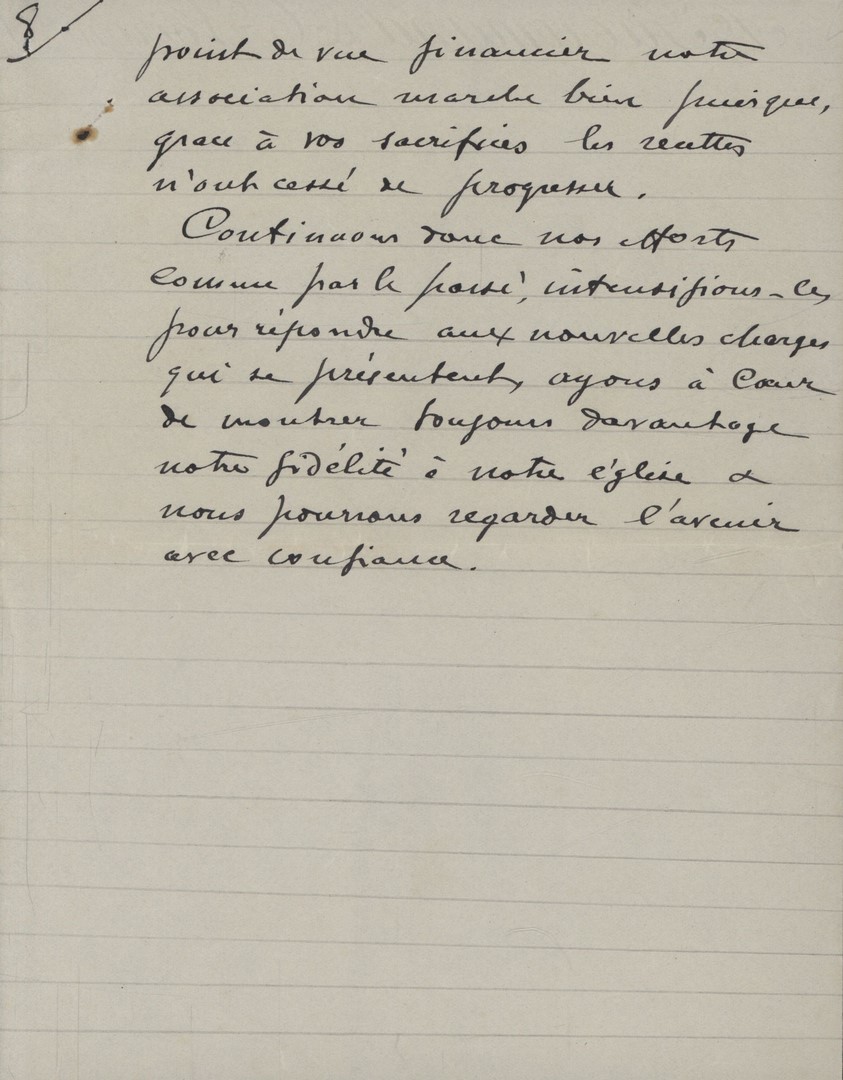 8
point de vue financier notre
association marche bien puisque,
grace à vos sacrifices les recettes
n'ont cessé de progresser.
Continuons donc nos efforts
comme par le passé, intensifions-les
pour répondre aux nouvelles charges
qui se présentent, ayons à cœur
de montrer toujours davantage
notre fidélité à notre église &
nous pourrons regarder l'avenir
avec confiance.